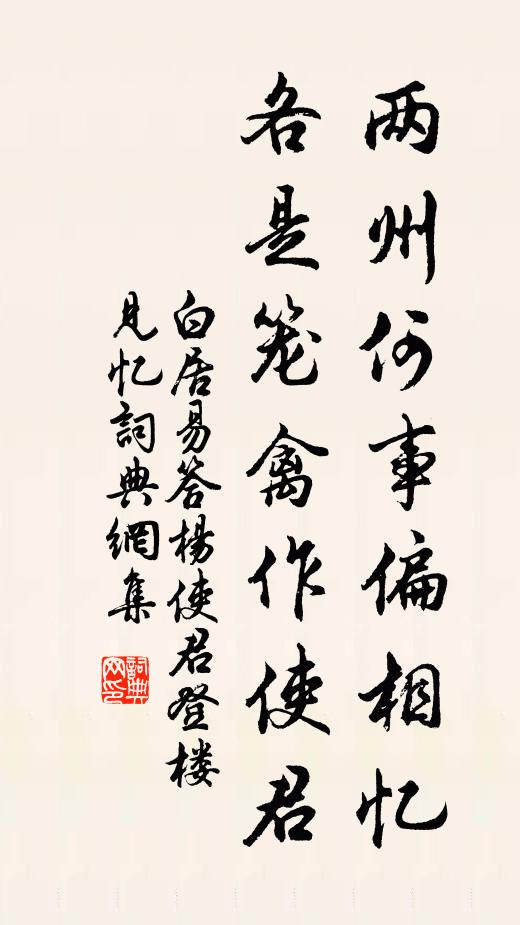 两州何事偏相忆
各是笼禽作使君
白居易答楊使君登楼
见忆詞典網集
詞典网印